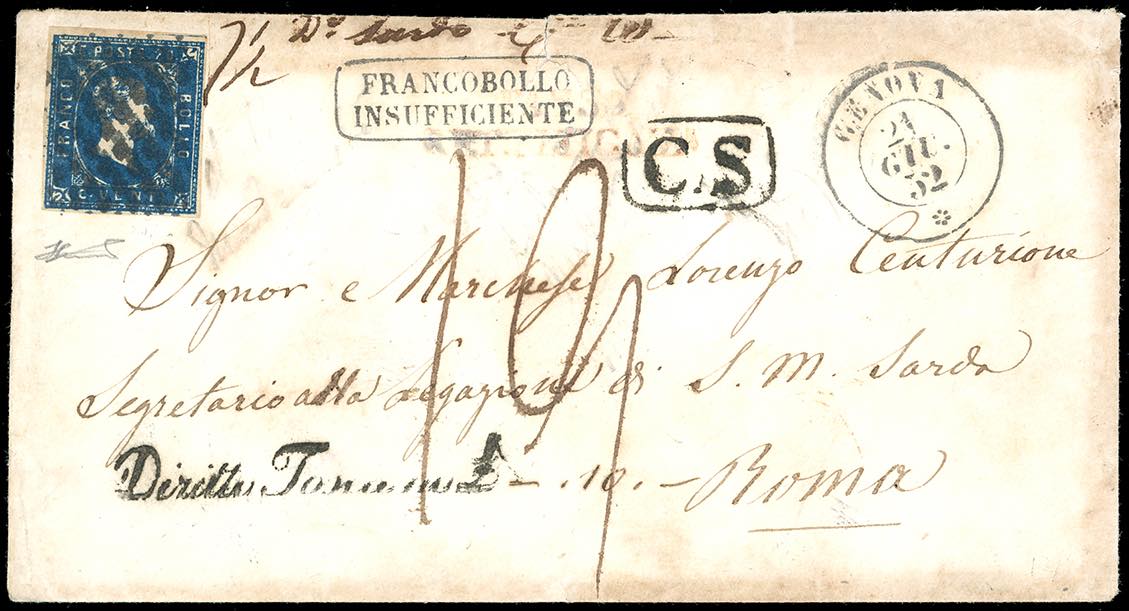 C. POSTE 20
FRANCO
BOLLO
C. VENTI
7½ D° Sardo
FRANCOBOLLO
INSUFFICIENTE
C.S
GENOVA
21
GIU.
52
19
Signor e Marchese Lorenzo Centurione
Segretario alla Legazione di S. M. Sarda
Diritto - .10. - Roma